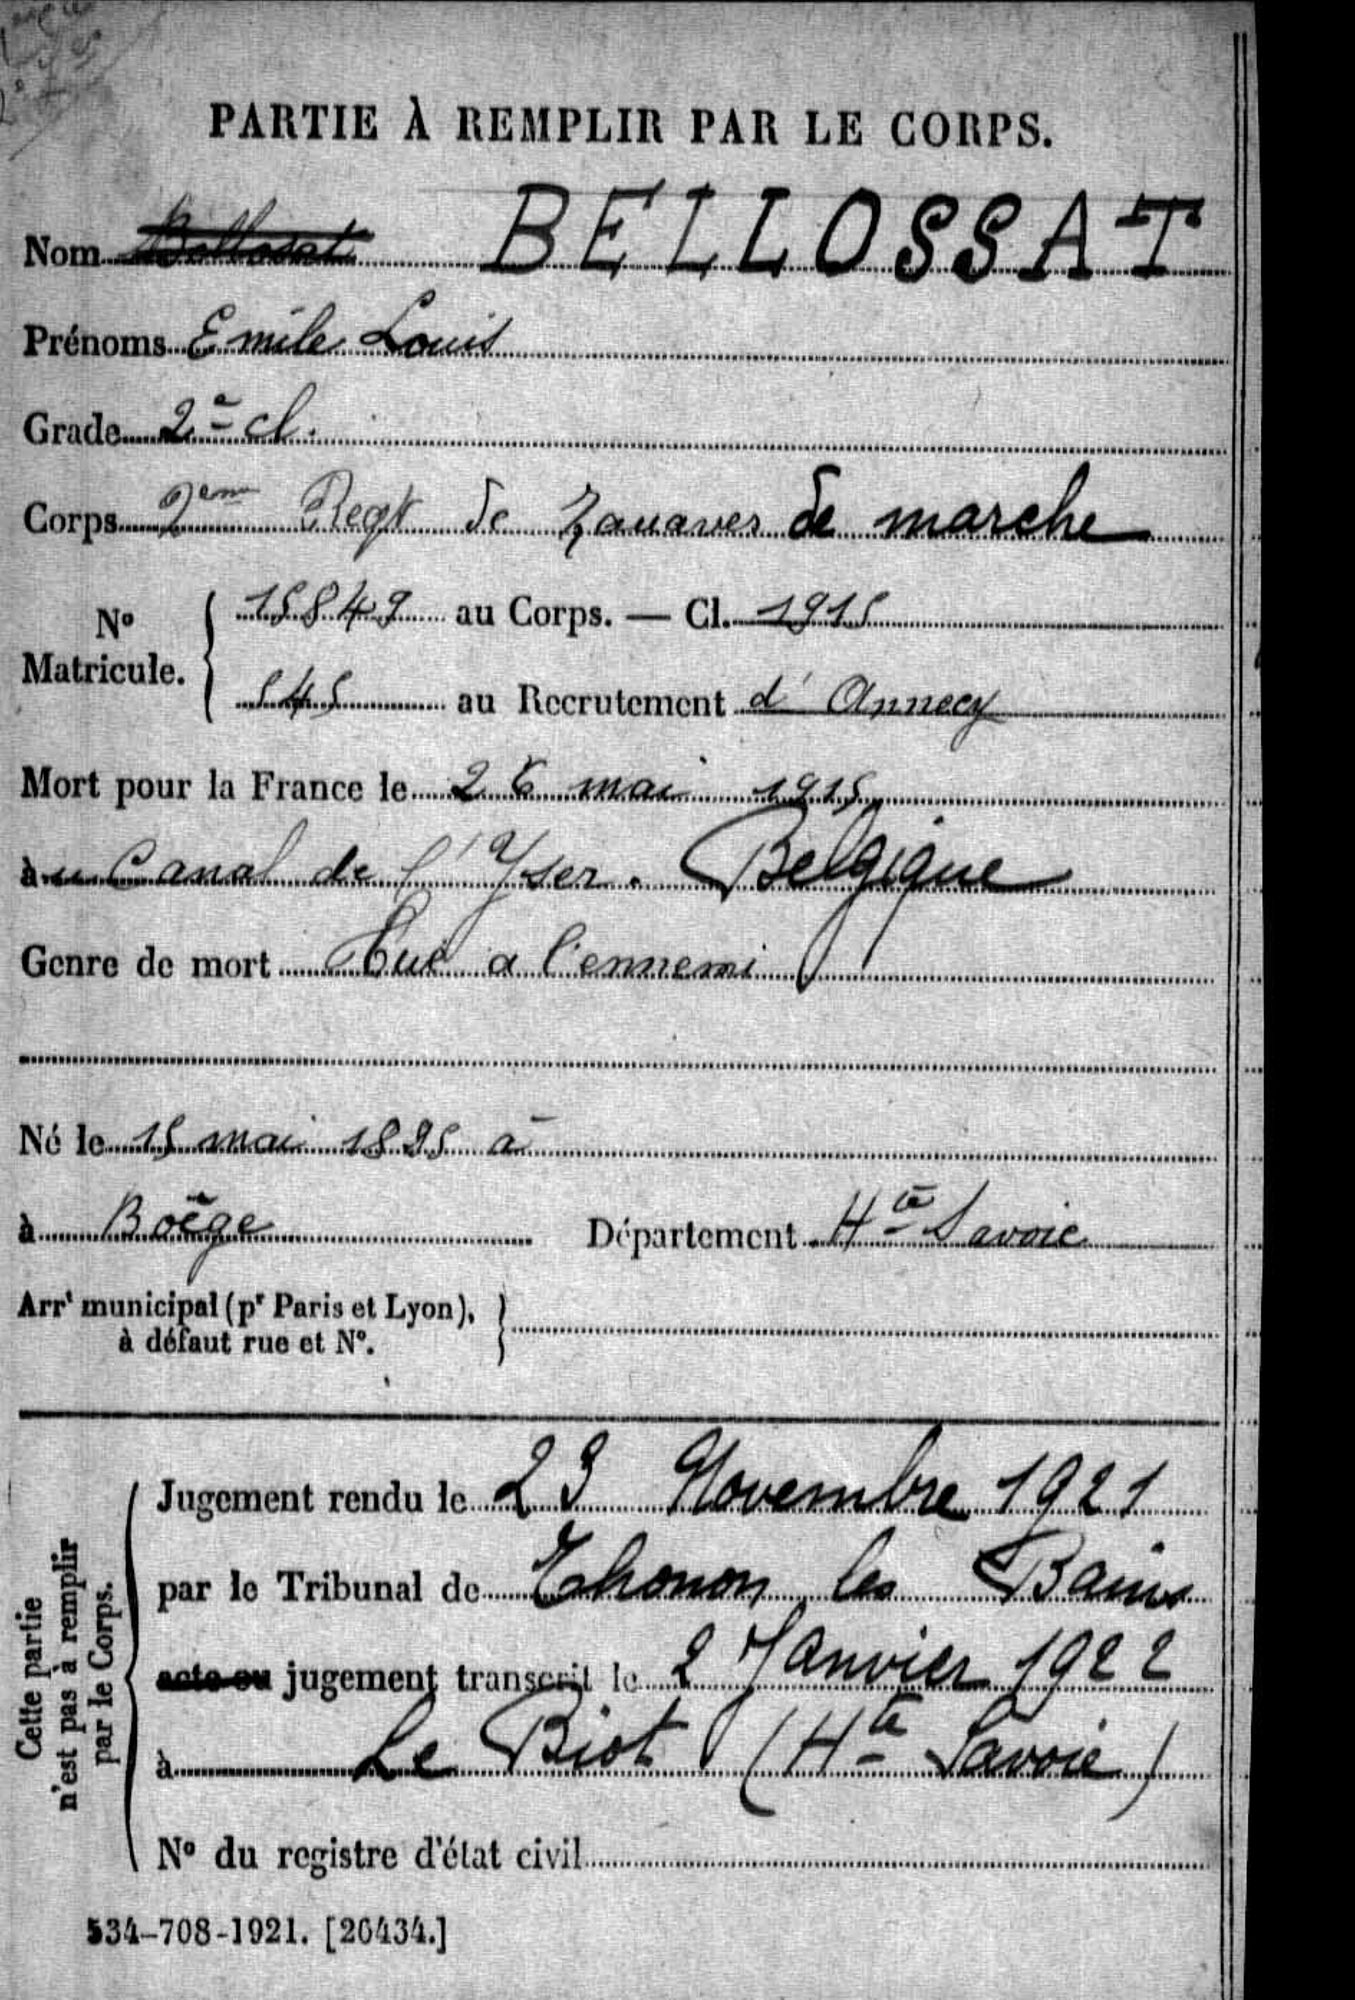 PARTIE À REMPLIR PAR LE CORPS.
Nom Bellosat BELLOSSAT
Prénoms Emile Louis
Grade 2e cl.
Corps 2em Regt de Zouaves de marche
No Matricule. { 15849 au Corps. — Cl. 1915
545 au Recrutement d'Annecy
Mort pour la France le 26 mai 1915
au Canal de l'Yser. Belgique
Genre de mort Tué a l'ennemi
Né le 15 mai 1895 à
à Boëge Département Hte Savoie
Arrt municipal (pr Paris et Lyon),
à défaut rue et No.
Cette partie
n'est pas à remplir
par le Corps.
Jugement rendu le 23 Novembre 1921
par le Tribunal de Thonon les Bains
acte ou jugement transcrit le 2 Janvier 1922
à Le Biot (Hte Savoie)
No du registre d'état civil
534-708-1921. [26434.]